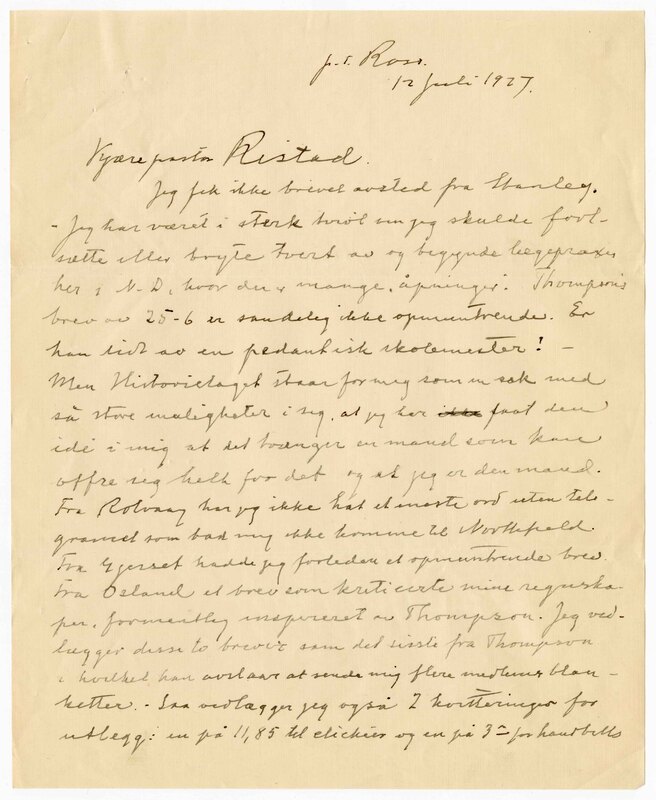 p.t. Ross.
12 Juli 1927.
Kjære pastor Ristad.
Jeg fik ikke brevet avsted fra Stanley.
- Jeg har været i sterk tvivl om jeg skulde fort-
sætte eller bryte tvert av og begynde lægepraxis
her i N-D, hvor der er mange "åpninger". Thompson's
brev av 25-6 er sandelig ikke opmuntrende. Er
han litt av en pedantisk skolemester! -
Men Historielaget staar for meg som en sak med
så store muligheter i seg, at jeg har faat den
idé i mig at det trænger en mand som kan
offre seg helt for det og at jeg er den mand.
Fra Rolvaag har jeg ikke hat et eneste ord uten tele-
gramet som bad mig ikke komme til Northfield.
Fra Gjerset hadde jeg forleden et opmuntrende brev.
Fra Osland et brev som kriticerte mine regnska-
per, formentlig inspireret av Thompson. Jeg ved-
lægger disse to breve som det sisste fra Thompson
i hvilket han avslaar at sende mig flere medlems blan-
ketter. - Saa vedlægger jeg også 2 kvitteringer for
utlegg: en på 11,85 til clichéer og en på 3 for handbills